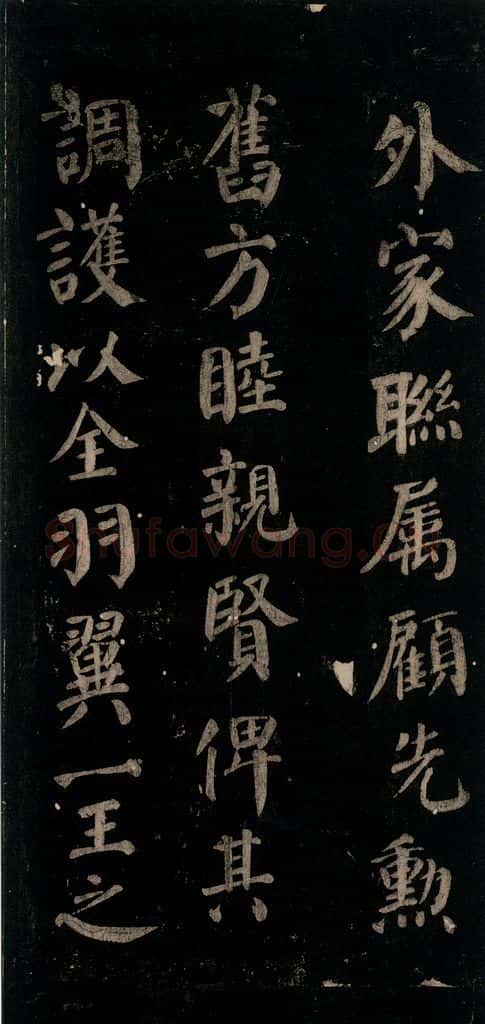 外家聯属顧先勲
舊方睦親賢俾其
調護以全羽翼一王之